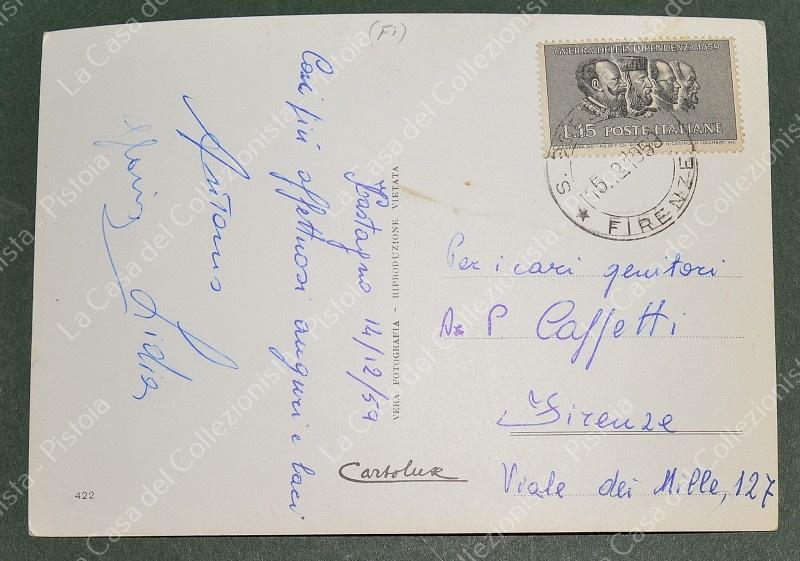 (Fi)
GUERRA DELL'INDIPENDENZA 1859
L.15 POSTE ITALIANE
FIRENZE
Con più affettuosi auguri e baci
Antonio
Lidia
Castagno 14/12/59
VERA FOTOGRAFIA - RIPRODUZIONE VIETATA
Per i cari genitori
Caffetti
Firenze
Viale dei Mille, 127
Cartolux
422
La Casa del Collezionista - Pistoia